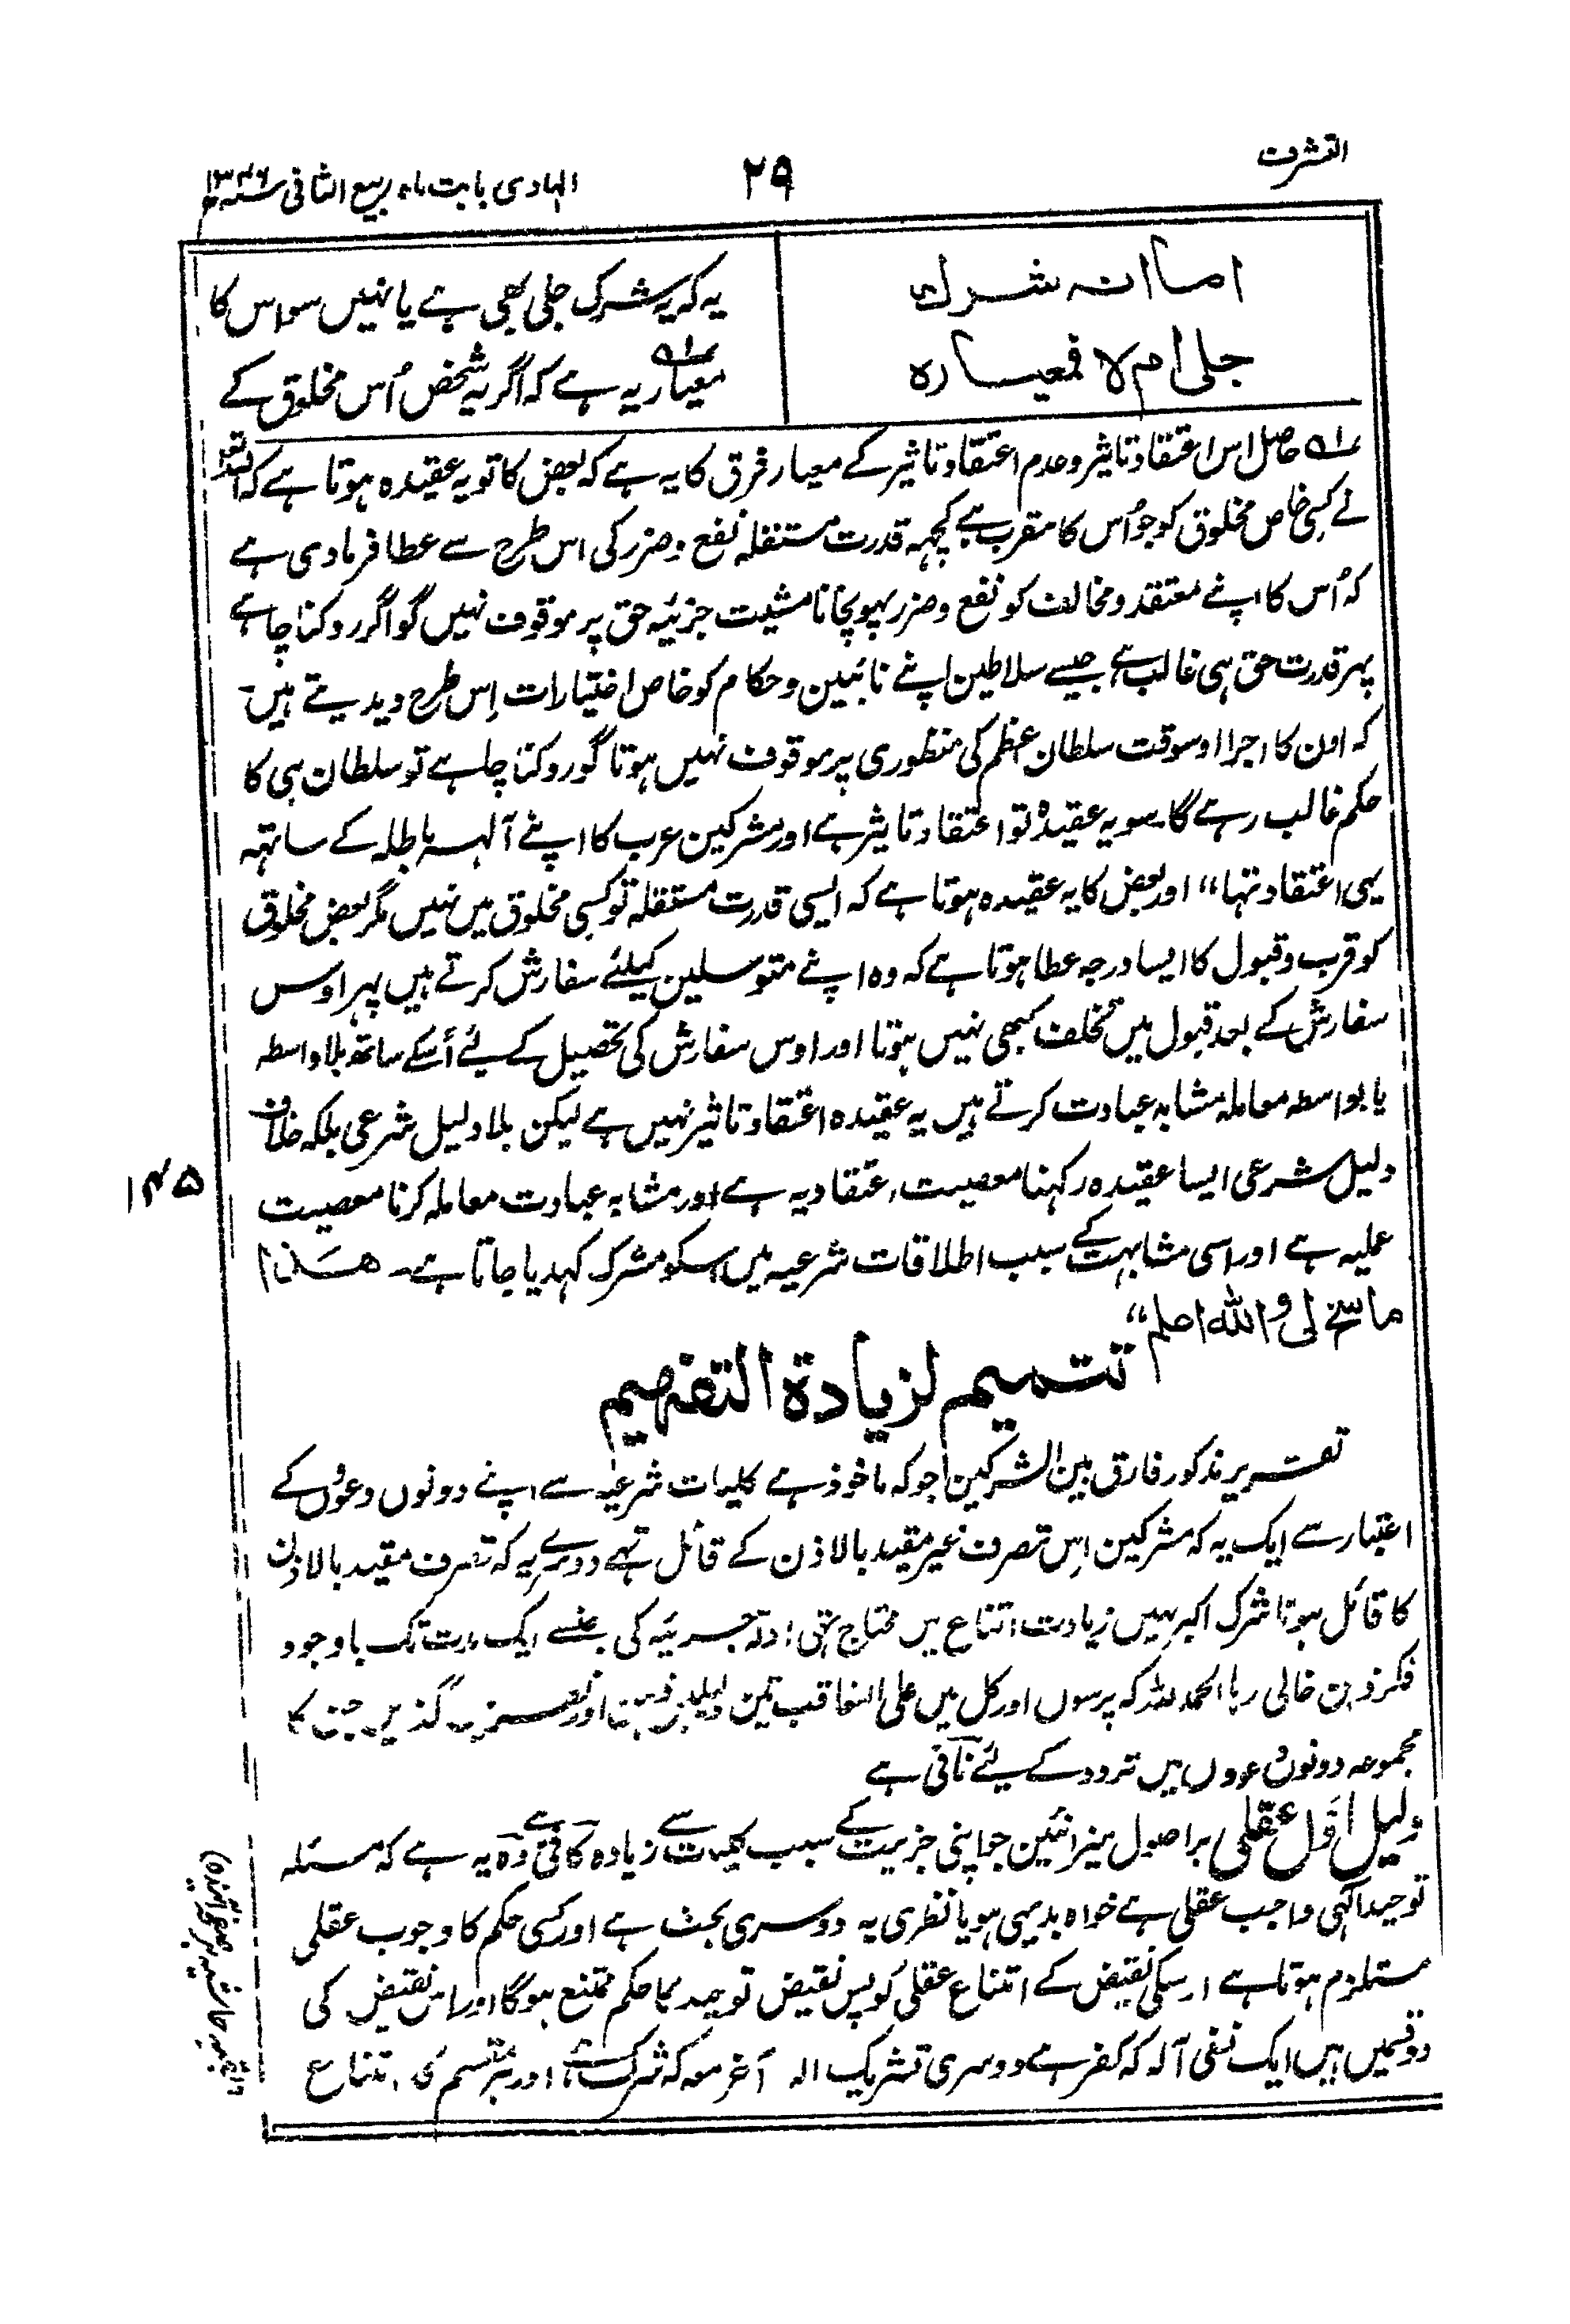 التشرف
۲۹
الہادی بابت ماہ ربیع الثانی سنہ ۱۳۴۶ھ
اما انہ شرك
جلی ام لا فمعیارہ
یہ کہ یہ شرک جلی بھی ہے یا نہیں سو اس کا
معیار یہ ہے کہ اگر یہ شخص اُس مخلوق کے
حاصل اس اعتقاد تاثیر و عدم اعتقاد تاثیر کے معیار فرق کا یہ ہے کہ بعض کا تو یہ عقیدہ ہوتا ہے کہ اللہ تعالیٰ
نے کسی خاص مخلوق کو جو اُس کا مقرب ہے کچہہ قدرت مستقلہ نفع و ضرر کی اس طرح سے عطا فرمادی ہے
کہ اُس کا اپنے معتقد و مخالف کو نفع و ضرر پہونچانا مشیت جزئیہ حق پر موقوف نہیں گو اگر روکنا چاہے
پہر قدرت حق ہی غالب ہے جیسے سلاطین اپنے نائبین و حکام کو خاص اختیارات اِس طرح دیدیتے ہیں
کہ اون کا اجرا اوسوقت سلطان عظم کی منظوری پر موقوف نہیں ہوتا گو روکنا چاہے تو سلطان ہی کا
حکم غالب رہے گا۔ سو یہ عقیدہ تو اعتقاد تاثیر ہے اور مشرکین عرب کا اپنے آلہہ باطلہ کے ساتہہ
یہی اعتقاد تہا“ اور بعض کا یہ عقیدہ ہوتا ہے کہ ایسی قدرت مستقلہ تو کسی مخلوق میں نہیں مگر بعض مخلوق
کو قرب و قبول کا ایسا درجہ عطا ہوتا ہے کہ وہ اپنے متوسلین کیلئے سفارش کرتے ہیں پہر اوس
سفارش کے بعد قبول میں تخلف کبھی نہیں ہوتا اور اوس سفارش کی تحصیل کے لئے اُسکے ساتھ بلا واسطہ
یا بواسطہ معاملہ مشابہ عبادت کرتے ہیں یہ عقیدہ اعتقاد تاثیر نہیں ہے لیکن بلا دلیل شرعی بلکہ خلاف
دلیل شرعی ایسا عقیدہ رکہنا معصیت اعتقادیہ ہے اور مشابہ عبادت معاملہ کرنا معصیت
۱۴۵
عملیہ ہے اور اسی مشابہت کے سبب اطلاقات شرعیہ میں اسکو مشرک کہدیا جاتا ہے۔ ھٰذا
ما سنح لی واللہ اعلم“
تتمیم لزیادة التفہیم
تقریر مذکور فارق بین الشرکین جو کہ ماخوذ ہے کلیات شرعیہ سے اپنے دونوں دعوٰں کے
اعتبار سے ایک یہ کہ مشرکین اِس تصرف غیر مقید بالاذن کے قائل تہے دوسرے یہ کہ تصرف مقید بالاذن
کا قائل ہونا شرک اکبر نہیں زیادت اقناع میں محتاج تہی ادلہ جزئیہ کی جسے ایک مدت تک باوجود
فکر ذہن خالی رہا الحمد للہ کہ پرسوں اور کل میں علی التعاقب تین دلیلیں ذہن اور نظر گذریں جن کا
مجموعہ دونوں دعووں میں تردد کے لئے نافی ہے
دلیل اول عقلی بر اصول میزانیین جو اپنی جزئیت کے سبب کلیت سے زیادہ کافی ہے وہ یہ ہے کہ مسئلہ
توحید الٰہی واجب عقلی ہے خواہ بدیہی ہو یا نظری یہ دوسری بحث ہے اور کسی حکم کا وجوب عقلی
مستلزم ہوتا ہے اسکی نقیض کے امتناع عقلی کو پس نقیض توحید کا حکم ممتنع ہوگا اور اس نقیض کی
دو قسمیں ہیں ایک نفی آلہ کہ کفر ہے دوسری تشریک الہ آخر معہ کہ شرک ہے اور ہر قسم کی امتناع
بقیہ حاشیہ بر صفحہ آئندہ